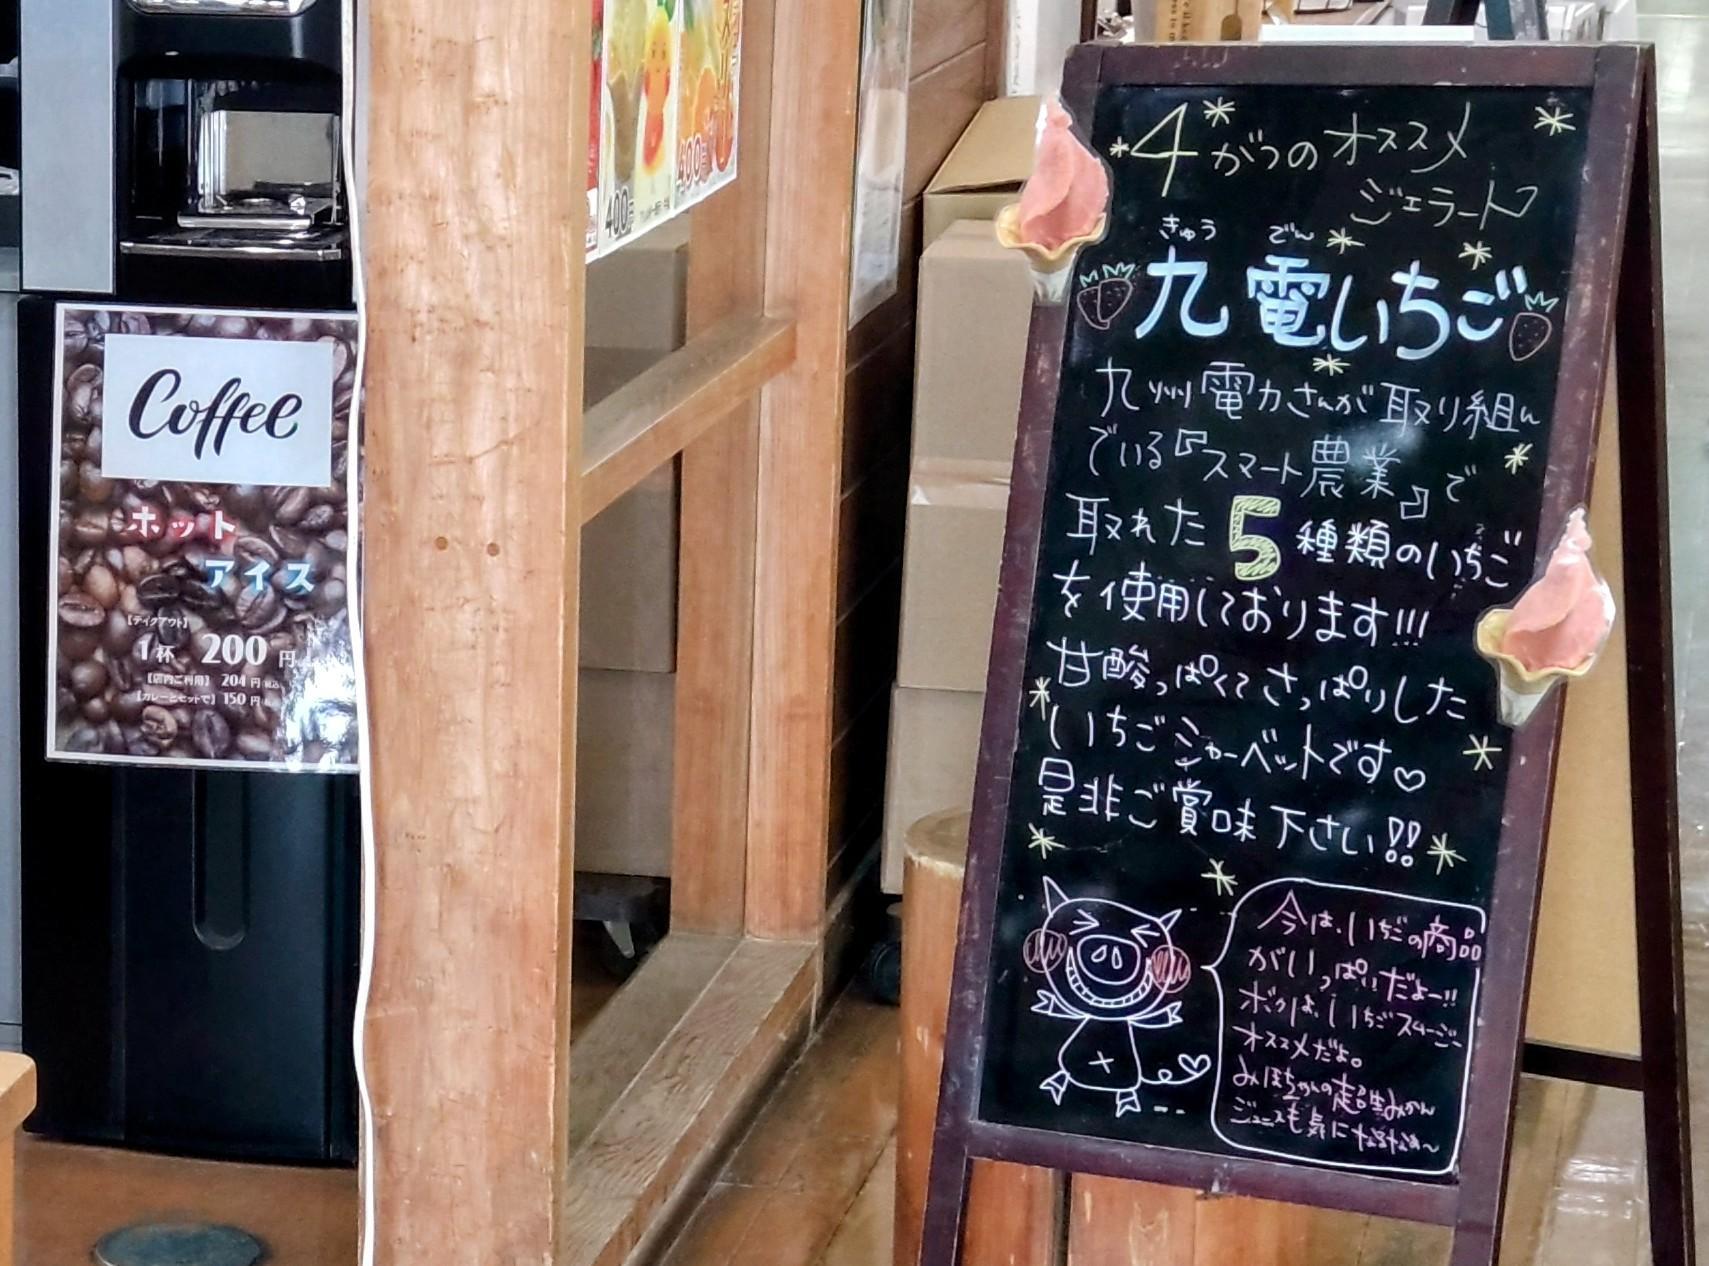 Coffee
ホット
アイス
【テイクアウト】
1杯 200円
【店内ご利用】 204円(税込)
【カレーとセットで】 150円
400円
400円
4がつのオススメ
ジェラート
きゅう でん
九電いちご
九州電力さんが取り組ん
でいる『スマート農業』で
取れた5種類のいちご
を使用しております!!!
甘酸っぱくてさっぱりした
いちごシャーベットです♡
是非ご賞味下さい!!
今は、いちごの商品
がいっぱいだよー!!
ボクは、いちごスムージー
オススメだよ。
みほちゃんの超生みかん
ジュースも気になるなぁ～